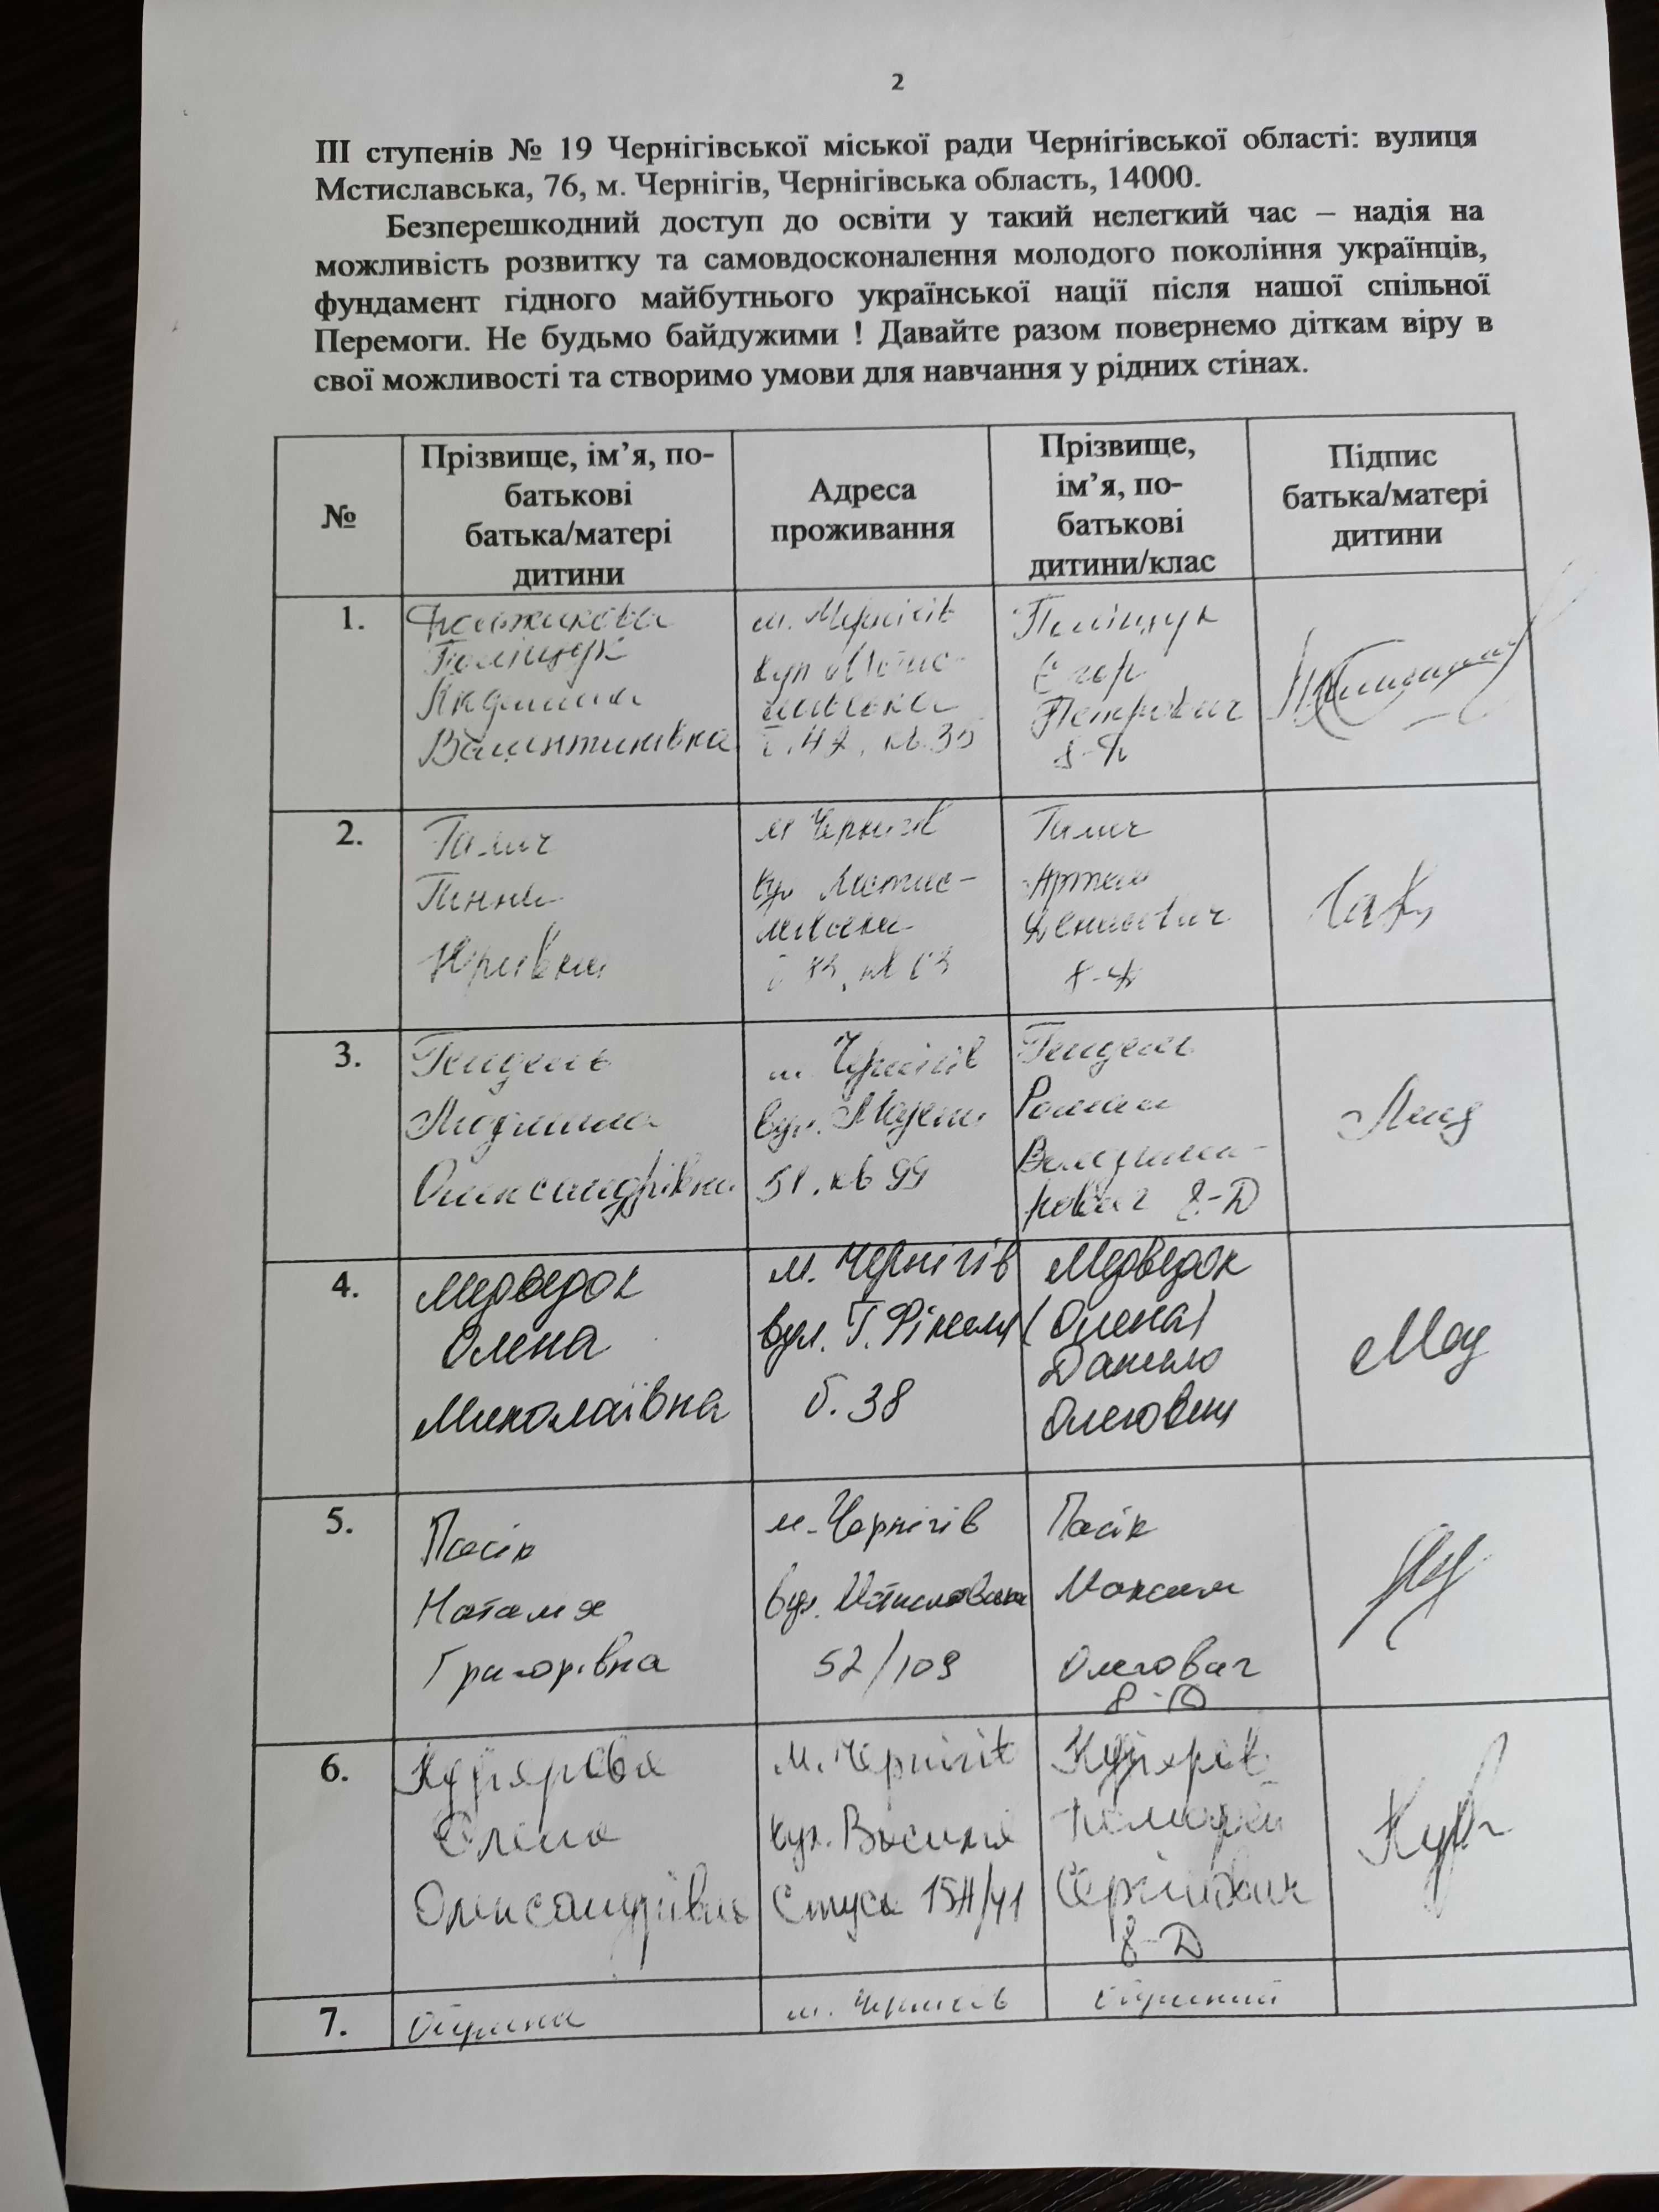 2
ІІІ ступенів № 19 Чернігівської міської ради Чернігівської області: вулиця
Мстиславська, 76, м. Чернігів, Чернігівська область, 14000.
Безперешкодний доступ до освіти у такий нелегкий час – надія на
можливість розвитку та самовдосконалення молодого покоління українців,
фундамент гідного майбутнього української нації після нашої спільної
Перемоги. Не будьмо байдужими ! Давайте разом повернемо діткам віру в
свої можливості та створимо умови для навчання у рідних стінах.
№
Прізвище, ім’я, по-
батькові
батька/матері
дитини
Адреса
проживання
Прізвище,
ім’я, по-
батькові
дитини/клас
Підпис
батька/матері
дитини
1.
Поліщук
Людмила
Валентинівна
м. Чернігів
вул Мстис-
лавська
Поліщук
Єгор
Петрович
2.
Галич
Юріївна
м Чернігів
вул Мстис-
лавська
Галич
Артем
Денисович
3.
Гендель
Людмила
Олександрівна
м. Чернігів
вул. Мазепи
51, кв 99
Гендель
Роман
Володими-
рович 8-Д
4.
Медведок
Олена
Миколаївна
м. Чернігів
вул.
б. 38
Медведок
(Олена)
Данило
Олегович
5.
Пасік
Наталія
Григорівна
м. Чернігів
вул. Мстиславська
52/109
Пасік
Максим
Олегович
8-Д
6.
Олена
Олександрівна
м. Чернігів
вул. Василя
Стуса
Тимофій
Сергійович
8-Д
7.
м. Чернігів